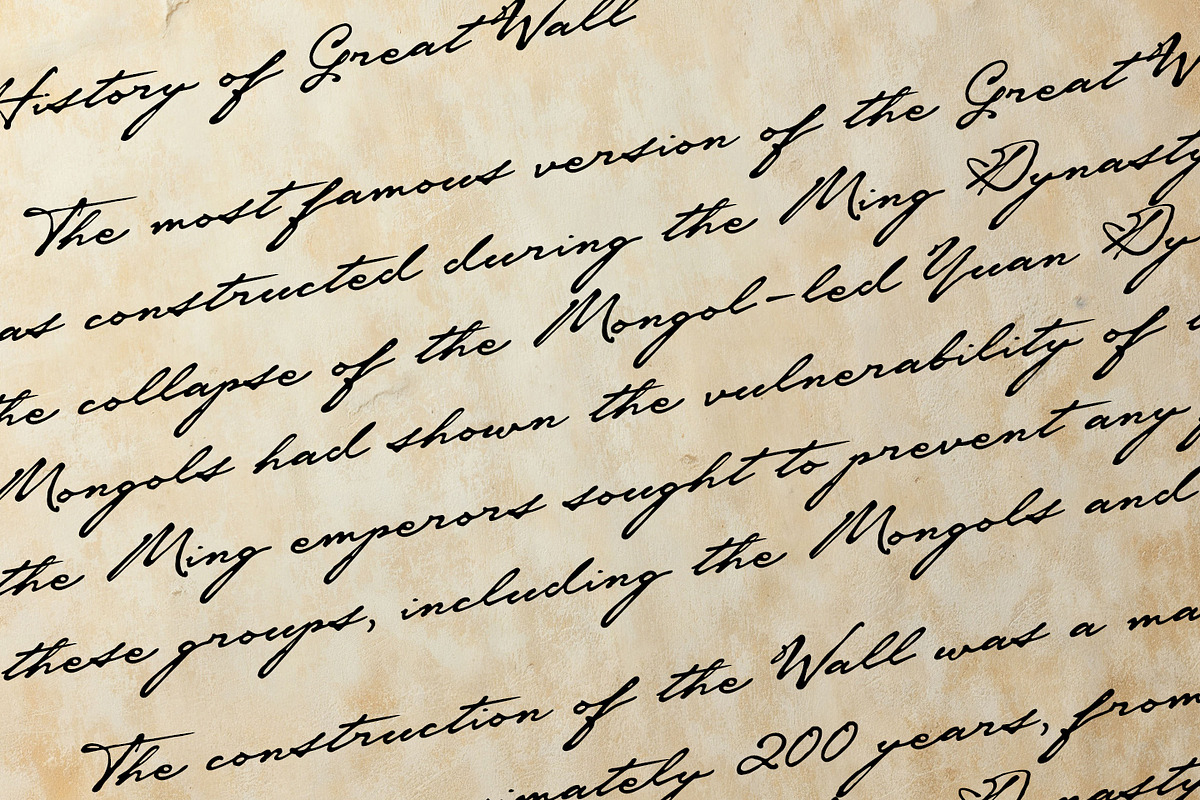 History of Great Wall
The most famous version of the Great
as constructed during the Ming Dynasty
the collapse of the Mongol-led Yuan
Mongols had shown the vulnerability of
the Ming emperors sought to prevent any
these groups, including the Mongols and
The construction of the Wall was a
200 years, from